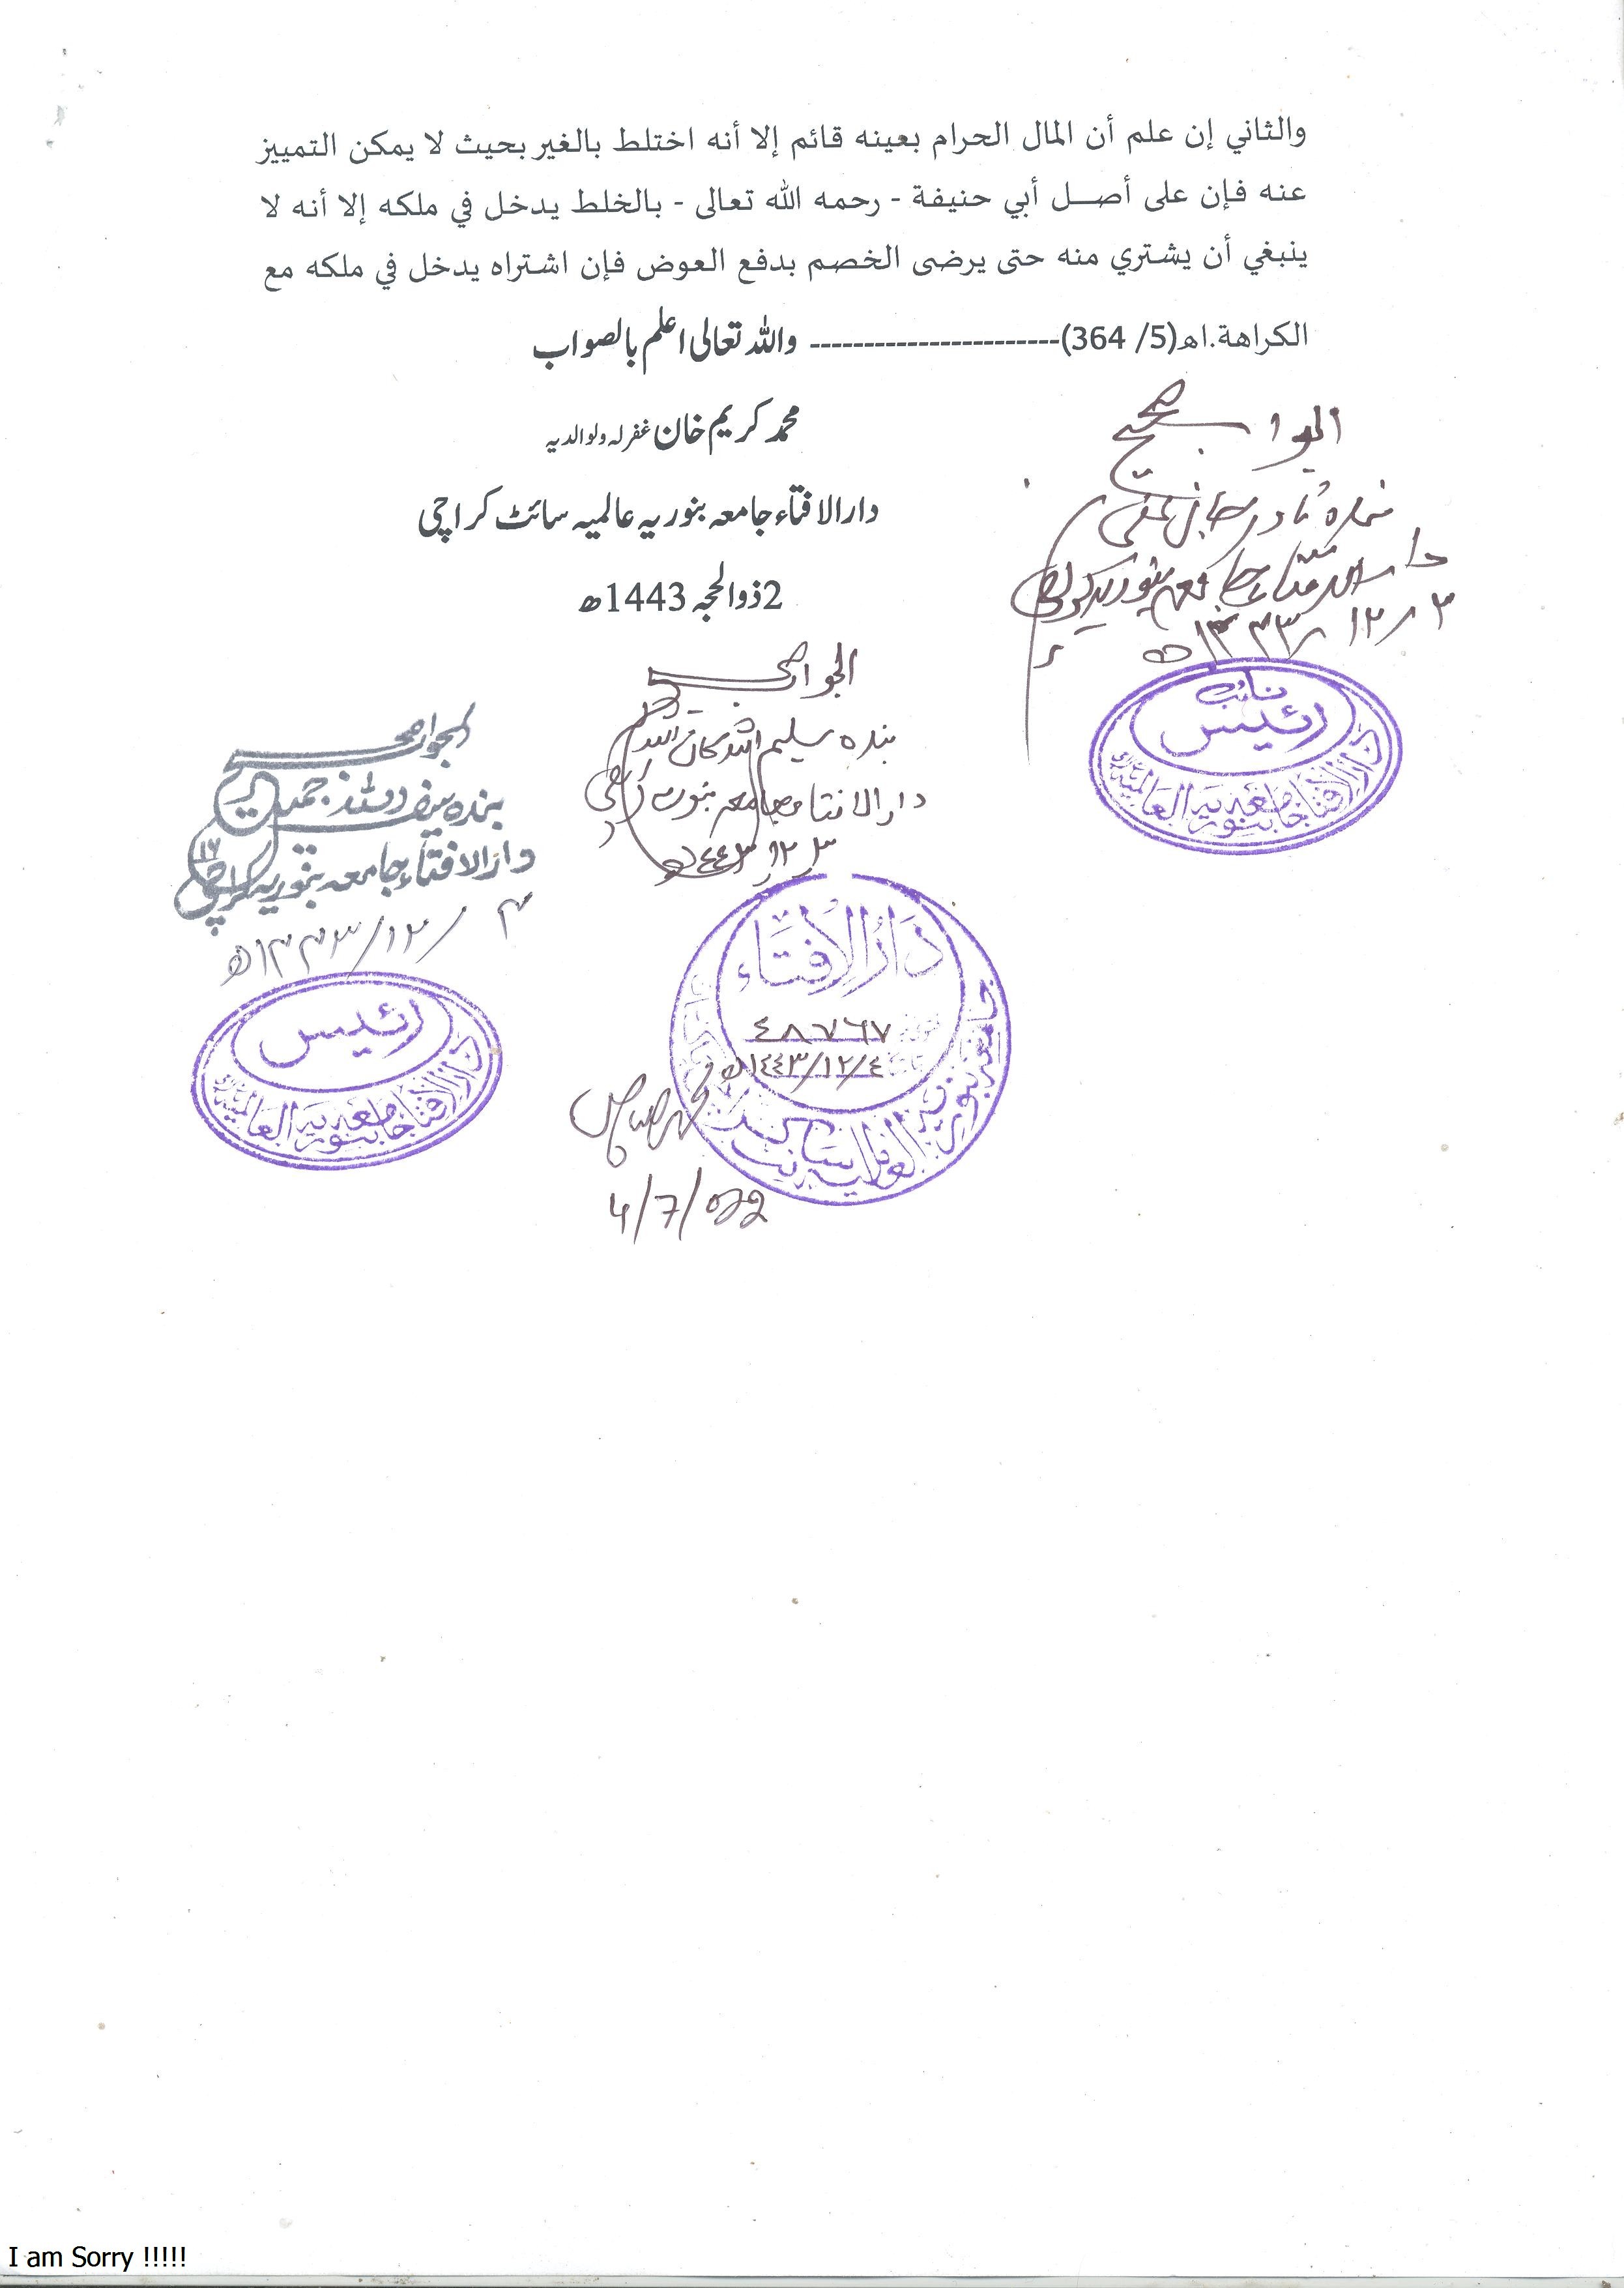 والثاني إن علم أن المال الحرام بعينه قائم إلا أنه اختلط بالغير بحيث لا يمكن التمييز
عنه فإن على أصل أبي حنيفة - رحمه الله تعالى - بالخلط يدخل في ملكه إلا أنه لا
ينبغي أن يشتري منه حتى يرضى الخصم بدفع العوض فإن اشتراه يدخل في ملكه مع
الكراهة.اھ(5/ 364)----------------------- واللہ تعالی اعلم بالصواب
محمد کریم خان غفرلہ ولوالدیہ
دارالافتاء جامعہ بنوریہ عالمیہ سائٹ کراچی
2ذوالحجہ 1443ھ
الجواب صحیح
بندہ نادر جان
دارالافتاء جامعہ بنوریہ کراچی
۳/۱۲/۱۴۴۳ھ
نائب
رئیس
دارالافتاء جامعہ بنوریہ العالمیہ
الجواب صحیح
بندہ سلیم اللہ
دارالافتاء جامعہ بنوریہ کراچی
۳/۱۲/۱۴۴۳ھ
الجواب صحیح
بندہ
دارالافتاء جامعہ بنوریہ کراچی
۴/۱۲/۱۴۴۳ھ
رئیس
دارالافتاء جامعہ بنوریہ العالمیہ
دَارُ الإِفتَاء
٤٨٧٦٧
١٤٤٣/١٢/٤ھ
جامعہ بنوریہ العالمیہ
4/7/022
I am Sorry !!!!!